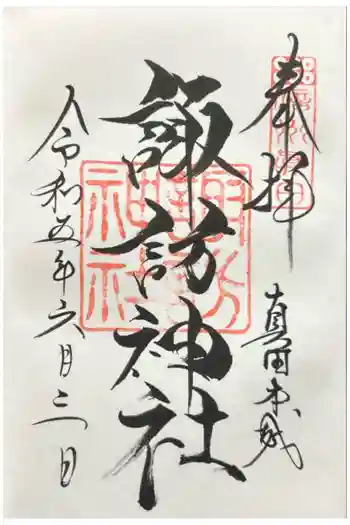 奉拝
真田本城
諏訪神社
令和五年六月三日
諏訪神社